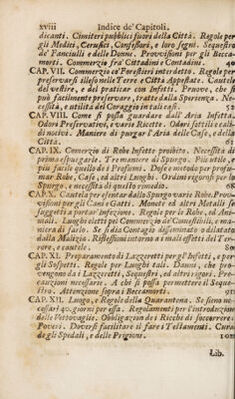 xviii Indice de' Capitoli.
dicanti. Cimiteri pubblici fuori della Città. Regole per
gli Medici, Cerusici, Confessori, e loro segni. Sequestro
de' Fanciulli e delle Donne. Provvisioni per gli Becca-
morti. Commerzio fra' Cittadini e Contadini. 40
CAP. VII. Commerzio co' Forestieri interdetto. Regole per
preservarsi illeso nelle Terre e Città Appestate. Cautele
del vestire, e del praticar con Infetti. Pruove, che si
può facilmente preservare, tratte dalla Sperienza. Ne-
cessità, e utilità del Coraggio in tali casi.
CAP. VIII. Come si possa guardare dall' Aria Infetta.
Odori Preservativi, e varie Ricette. Odori sottili e cal-
di nocivi. Maniere di purgar l'Aria delle Case, e della
Città. 61
CAP. IX. Commerzio di Robe Infette proibito. Necessità di
prima espurgarle. Tre maniere di Spurgo. Più utile, e
più facile quello de i Profumi. Dose e metodo per profu-
mar Robe, Case, ed altri Luoghi. Ordini rigorosi per lo
Spurgo, e necessità di questo rimedio. 68
CAP. X. Cautela per esentar dallo Spurgo varie Robe. Prov-
visioni per gli Cani e Gatti. Monete ed altri Metalli se
suggetti a portar' infezione. Regole per le Robe, ed Ani-
mali. Luogo eletto pel Commerzio de' Comestibili, e ma-
niera di farlo. Se si dia Contagio disseminato o dilatato
dalla Malizia. Riflessioni intorno a i mali effetti del Ter-
rore, e cautele. 80
CAP. XI. Preparamento di Lazzeretti per gl' Infetti, e per
gli Sospetti. Regole per Luoghi tali. Danni, che pro-
vengono da i Lazzeretti, Sequestri, ed altri rigori. Pre-
cauzioni necessarie. A chi si possa permettere il Seque-
stro. Attenzione sopra i Beccamorti. 91
CAP. XII. Luogo, e Regole della Quarantena. Se sieno ne-
cessarj 40. giorni per essa. Regolamenti per l'introduzion
delle Vettovaglie. Obbligazion de i Ricchi di soccorrere i
Poveri. Doversi facilitare il fare i Testamenti. Cura
de gli Spedali, e delle Prigioni. 102
Lib.